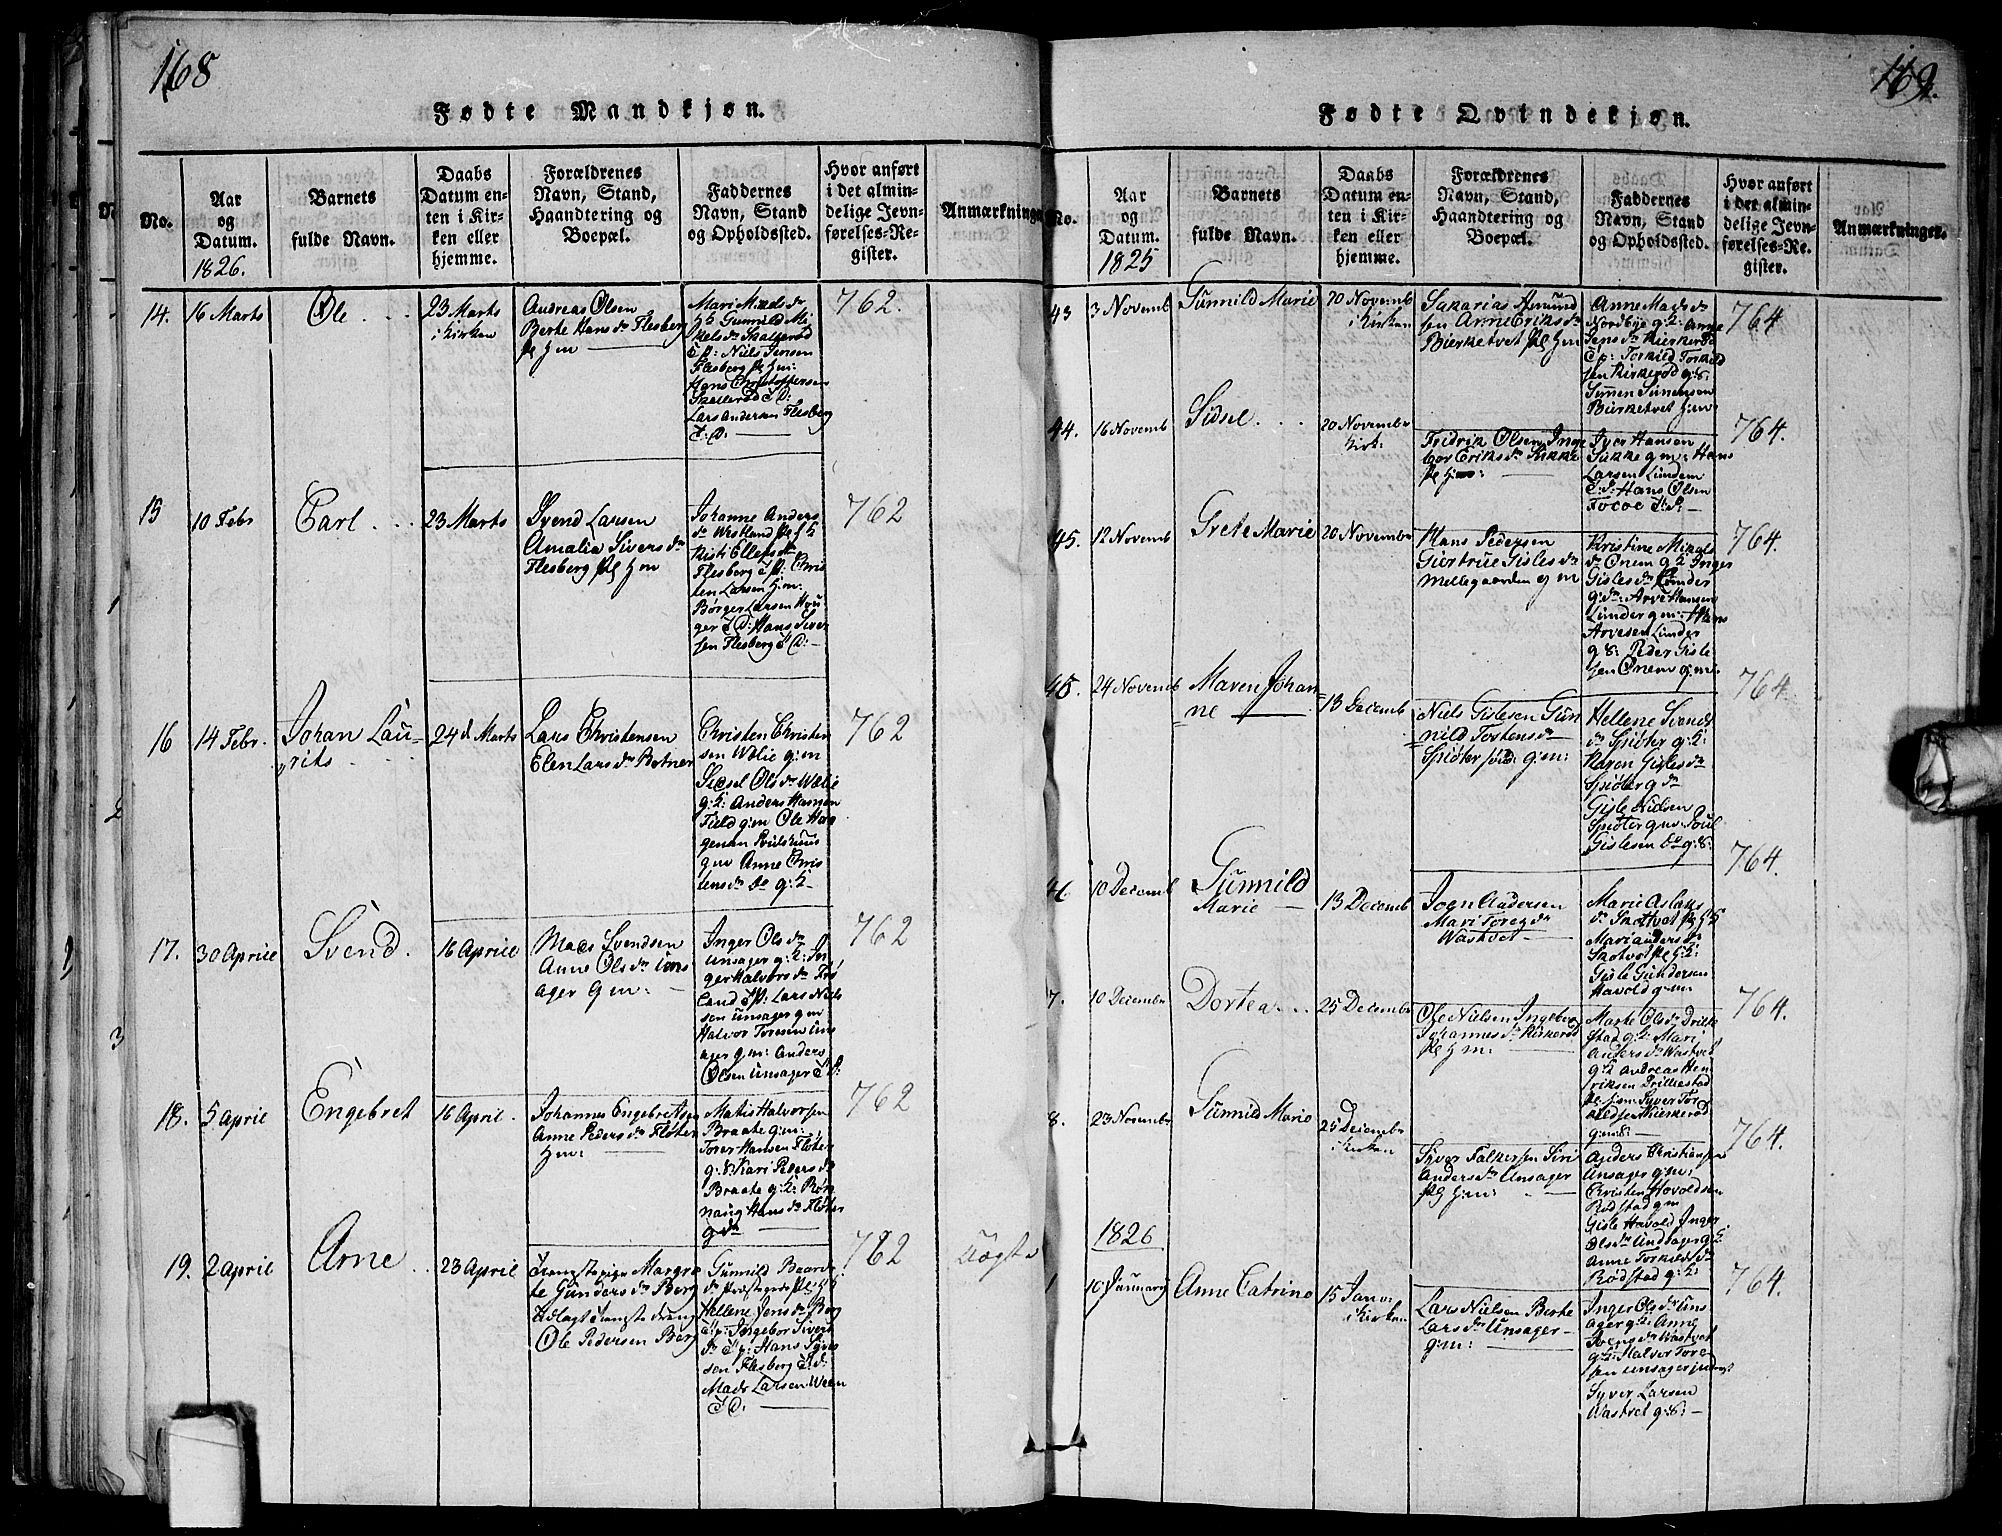 168
Fødte Mandkjøn.
No.
Aar
og
Datum.
1826.
Barnets
fulde Navn.
Daabs
Datum en-
ten i Kir-
ken eller
hjemme.
Forældrenes
Navn, Stand,
Haandtering og
Boepæl.
Faddernes
Navn, Stand
og Opholdssted.
Hvor anført
i det almin-
delige Jevn-
førelses-Re-
gister.
Anmærkninger
14.
16 Marts
Ole
23 Marts
i Kirken
Andreas Olsen
Berte Hans dr Flesberg
Gunnild Mi
kels dr Skallerød
Niels Jensen
Flesberg
Hans Christoffersen
Skallerød
Lars Andersen Flesberg
762.
15
10 Febr
Carl
23 Marts
Svend Larsen
Amalia Sivers dr
Flesberg
Johanne Anders
dr Westland
Flesberg
ten Larsen
Børger Larsen
Hans Siver
sen Flesberg
762
16
14 Febr.
Johan Lau-
rits
24d Marts
Lars Christensen
Elen Lars dr Botner
Christen Christen
sen Wølie g:m
Sidsel Ols dr Wølie
g:2: Anders Hansen
Field g:m Ole Haa
gensen
gm Anne Chris
tens dr do g:2
762
17.
30 Aprile
Svend.
16 Aprile
Mads Svendsen
Anne Ols dr Uns
ager gm:
Inger Ols dr
Unsager g:2: In
ger Halvors dr Frø
land Lars Niels
sen Unsager gm
Halvor Toresen Uns
ager gm: Anders
Olsen Unsager
762
18.
5 April
Engebret
16 April.
Johannes Engebretsen
Anne Peders dr Fløter
Matis Halvorsen
Braate g:m:
Torer Hansen Fløter
g:8 Kari Peders dr
Braate g:2: Røn
naug Hans dr Fløter
762
19.
2 April
Arne
23 April
Margre
te Gunders dr Berg
Ole Pedersen Berg
Gunnild Baards
Hellene Jens dr Berg
Ingebor Sivers
Hans Syvers
sen Flesberg
Mads Larsen Ween
762
Uægte
169.
Fødte Qvindekjøn.
No.
Aar
og
Datum.
1825
Barnets
fulde Navn.
Daabs
Datum en-
ten i Kir-
ken eller
hjemme.
Forældrenes
Navn, Stand,
Haandtering og
Boepæl.
Faddernes
Navn, Stand
og Opholdssted.
Hvor anført
i det almin-
delige Jevn-
førelses-Re-
gister.
Anmærkninger.
43
3 Novemb
Gunnild Marie
20 Novemb
i Kirken
Sakarias Amund
sen Anne Eriks dr
Bierketvet
Anne Mads dr
Nordbye g:2: Anne
Jens dr Kierkerød
Torkild Torkild
sen Kirkerød g:8:
Simen Simensen
Bierketvet
764
44.
16 Novemb
Sidsel
20 Novembr
Kirk:
Fridrik Olsen Inge
bor Eriks dr Sukke
Iver Hansen
Sukke gm: Hans
Larsen Lundem
Hans Olsen
764.
45.
12 Novemb
Grete Marie
20 Novembr
Hans Pedersen
Giertrue Gisles dr
Mellegaarden gm
Kristine Mikels
dr Ønem g 2 Inger
Gisles dr Lunder
Arve Hansen
Lunder gm: Hans
Arvesen Lunder
g8: Peder Gisle
sen Ønem gm:
764.
45.
24 Novemb
Maren Johan
ne
13 Decemb
Niels Gislesen Gun
nild Tortens dr
Spiøter g:m:
Hellene Svends
dr Spiøter g:2:
Karen Gisles dr
Spiøter g dr
Gisle Nielsen
Spiøter gm Poul
Gislesen do g:8:
764.
46
10 Decemb
Gunnild
Marie
13 Decemb
Joen Andersen
Mari Tores dr
Wastvet
Marie Aslaks
Mari Anders dr
Skotvet
Gisle Gundersen
Havold g:m
764.
7.
10 Decembr
Dortea
25 Decembr
Ole Nielsen Ingeborg
Johannes dr Kirkerød
Marte Ols dr Drille
stad g:2: Mari
Anders dr Wastvet
g:2 Andreas Hen
riksen Drillestad
Syver Tor
Kierkerød
764.
8.
23 Novembr
Gunnild Marie
25 Decembr
i Kirken
Syver Falkersen Siri
Anders dr Unsager
Anders Christiansen
Unsager g:m:
Cristen Hovoldsen
Rødstad gm
Gisle Havold Inger
Ols dr Undsager g2
Anne Torkilds dr
Rødstad g:2:
764.
1826
1
10 Januarij
Anne Catrine
15 Janv.
i Kirken
Lars Nielsen Berte
Lars dr Unsager
g:m:
Inger Ols dr Uns
ager g:2: Anne
Svens dr Wastvet
g:2: Halvor Tore
sen Unsager
Syver Larsen
Wastvet g:8:
764.